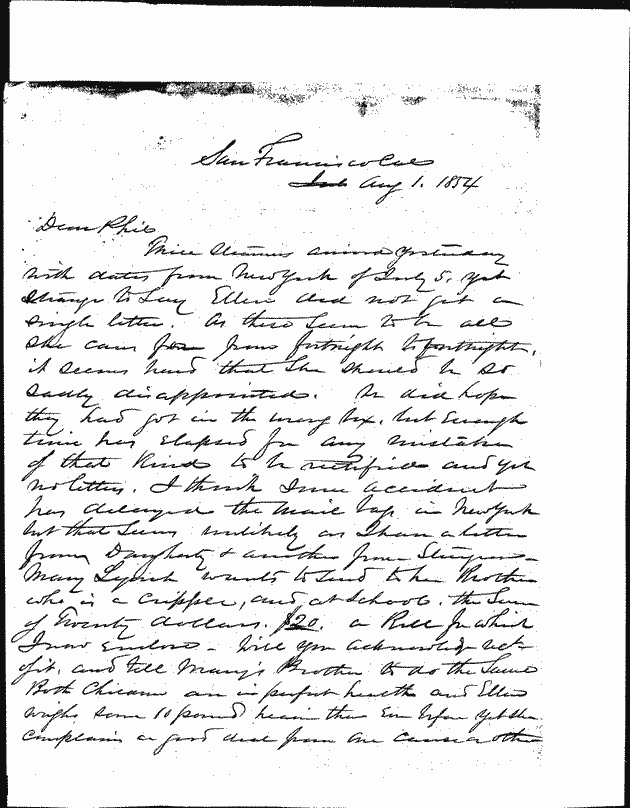 San Francisco Cal
Aug 1. 1854
Dear Phil
Three steamers arrived yesterday
with dates from New York of July 5. yet
strange to say Ellen did not get a
single letter. As these seem to be all
she cares for from fortnight to fortnight,
it seems hard that she should be so
sadly disappointed. We did hope
they had got in the wrong box. but enough
time has elapsed for any mistake
of that kind to be rectified and yet
no letters. I think some accident
has delayed the mail bags in New York
but that seems unlikely as I have a letter
from Daugherty & another from Sturgeons
Mary Lynch wants to send to her Brother
who is a cripple, and at school. the sum
of Twenty dollars. $20. a Bill for which
I now enclose - Will you acknowledge rect
of it. and tell Mary's Brother to do the same
Both Chicano are in perfect health and Ellen
weighs some 10 pounds heavier than Ever before yet she
complains a good deal from one cause or other